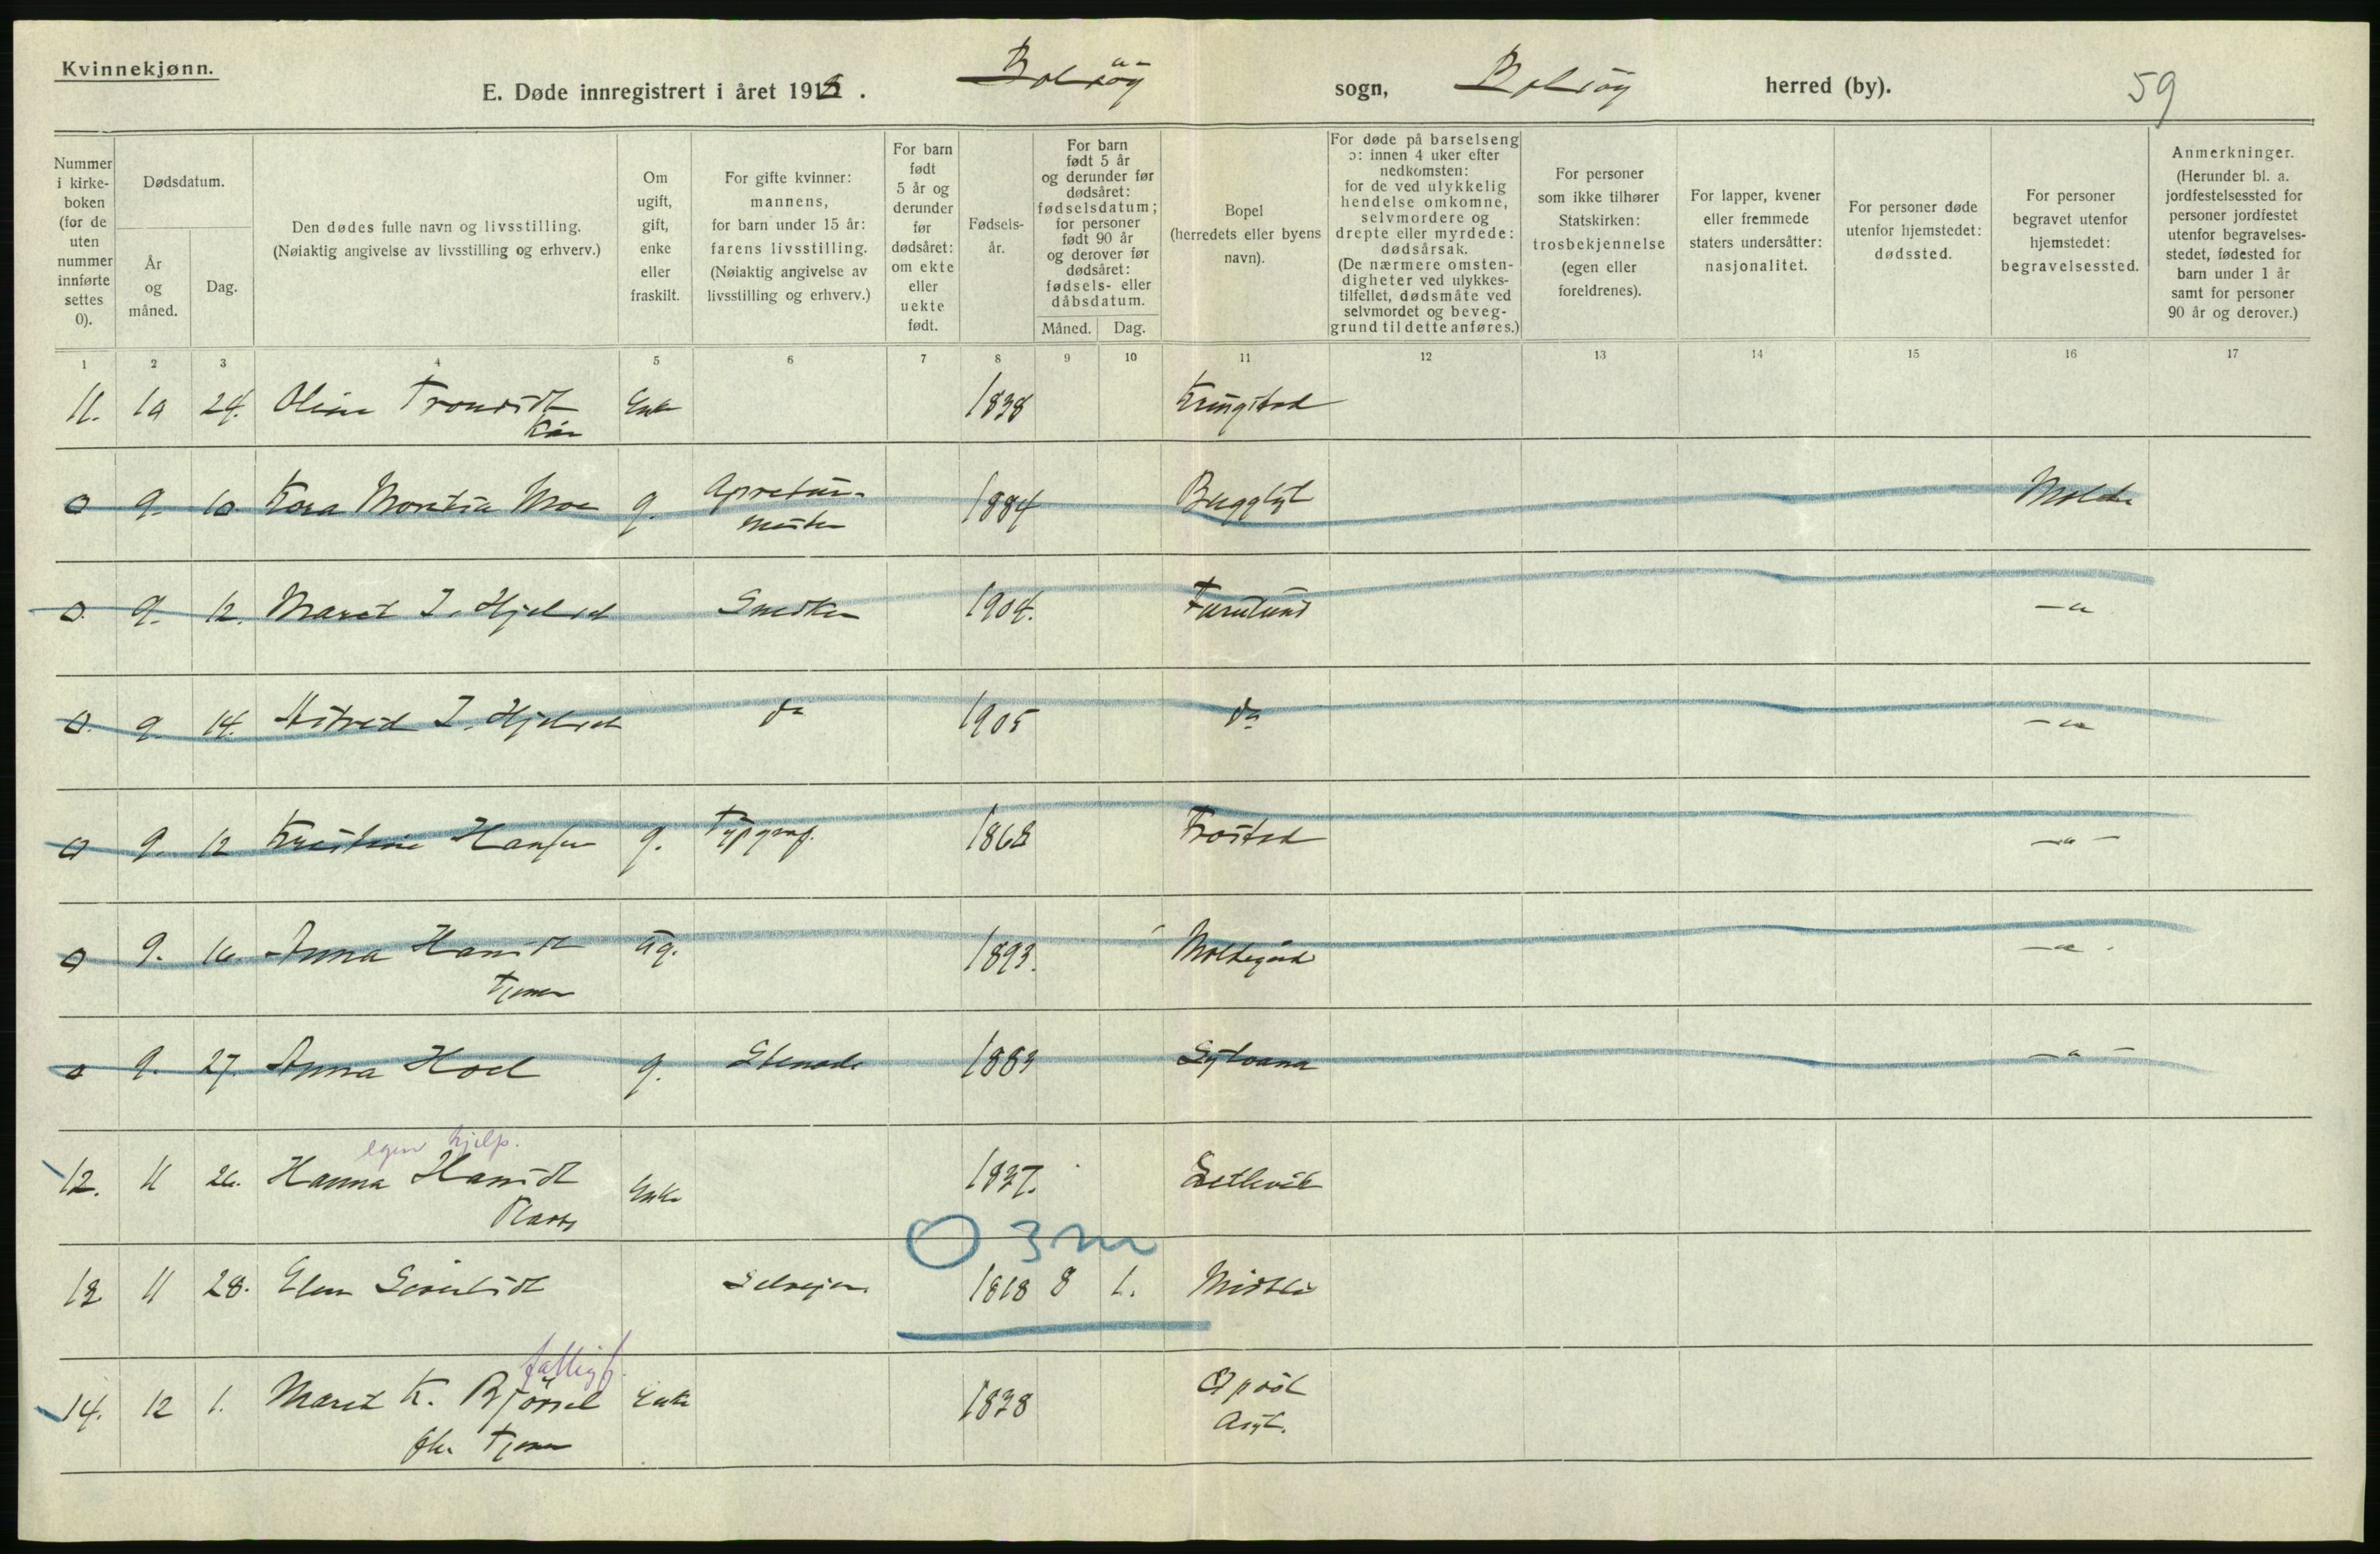 Kvinnekjønn.
E. Døde innregistrert i året 1918. Bolsöy sogn, Bolsöy herred (by). 59
Nummer i kirke-boken (for de uten nummer innførte settes 0).
Dødsdatum.
År og måned.
Dag.
Den dødes fulle navn og livsstilling.
(Nøiaktig angivelse av livsstilling og erhverv.)
Om ugift, gift, enke eller fraskilt.
For gifte kvinner: mannens, for barn under 15 år: farens livsstilling. (Nøiaktig angivelse av livsstilling og erhverv.)
For barn født 5 år og derunder før dødsåret: om ekte eller uekte født.
Fødsels-år.
For barn født 5 år og derunder før dødsåret: fødselsdatum; for personer født 90 år og derover før dødsåret: fødsels- eller dåbsdatum.
Måned. Dag.
Bopel (herredets eller byens navn).
For døde på barselseng ɔ: innen 4 uker efter nedkomsten: for de ved ulykkelig hendelse omkomne, selvmordere og drepte eller myrdede: dødsårsak. (De nærmere omsten-digheter ved ulykkes-tilfellet, dødsmåte ved selvmordet og beveg-grund til dette anføres.)
For personer som ikke tilhører Statskirken: trosbekjennelse (egen eller foreldrenes).
For lapper, kvener eller fremmede staters undersåtter: nasjonalitet.
For personer døde utenfor hjemstedet: dødssted.
For personer begravet utenfor hjemstedet: begravelsessted.
Anmerkninger. (Herunder bl. a. jordfestelsessted for personer jordfestet utenfor begravelses-stedet, fødested for barn under 1 år samt for personer 90 år og derover.)
1 2 3 4 5 6 7 8 9 10 11 12 13 14 15 16 17
11. 10 24. Oline Enke 1838 Kringstad
Kår
0 9. 10. Moe g. Apretur- 1884 Molde
mester
0. 9. 12. Marit J. Hjelset Snedker 1904. Furulund —"
0. 9. 14. Astrid J. Hjelset do 1905 do —"
0 9. 12 Kristine Hansen g. Typgraf. 1868 —"—
0 9. 16. Anna Hansdt ug. 1893. Moldegård —"
Tjener
0 9. 27. Anna Hoel g. 1883 Sylvana —"—
egen hjelp.
12. 11 26. Hanna Hansdt Enke 1837.
Plass
0 3 m
13 11 28. Elen Selveier 1818 8 1.
fattigf.
14. 12 1. Marit K. Enke 1838 Opdöl
fhv. Tjener Asyl.